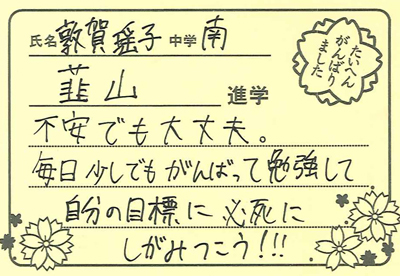 氏名 敦賀瑶子 中学 南
韮山 進学
たいへん
がんばり
ました
不安でも大丈夫。
毎日少しでもがんばって勉強して
自分の目標に必死に
しがみつこう!!!